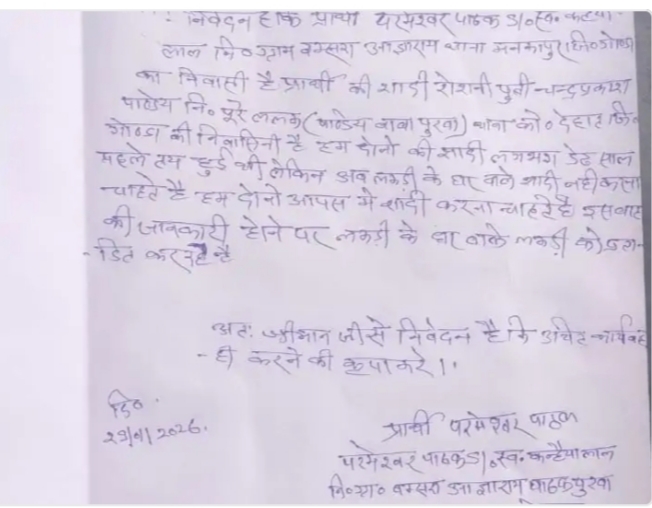 निवेदन है कि प्रार्थी परमेश्वर पाठक S/० स्व. कन्हैया
लाल नि० ग्राम बम्सरा आज्ञाराम थाना मनकापुर जि० गोण्डा
का निवासी है प्रार्थी की शादी रोशनी पुत्री चन्द्रप्रकाश
पाण्डेय नि० पूरे ललक (पाण्डेय बाबा पुरवा) थाना को० देहात जि०
गोण्डा की निवासिनी है हम दोनो की शादी लगभग डेढ साल
पहले तय हुई थी लेकिन अब लडकी के घर वाले शादी नही करना
चाहते है हम दोनो आपस मे शादी करना चाहते है इस बात
की जानकारी होने पर लडकी के घर वाले लडकी को प्रता-
-डित कर रहे है
अतः श्रीमान जी से निवेदन है कि उचित कार्यवा
- ही करने की कृपा करे।
दि०
29/01/2026.
प्रार्थी परमेश्वर पाठक
परमेश्वर पाठक S/० स्व. कन्हैयालाल
नि० ग्रा० बम्सरा आज्ञाराम पाठक पुरवा